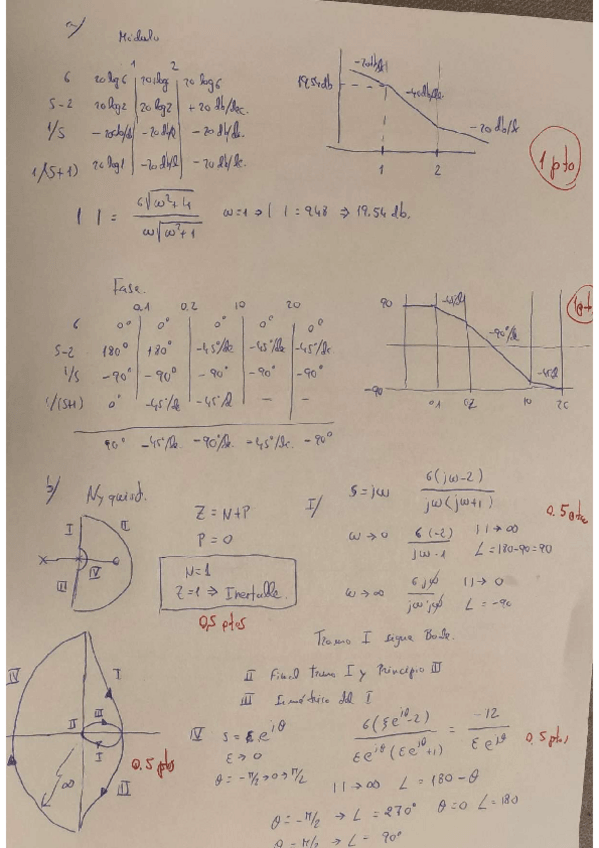 a/ Módulo
1 2
6 20 log 6 20 log 6 20 log 6
S-2 20 log 2 20 log 2 +20 db/dec.
1/S -20db/d -20 db/d -20 db/dc.
1/(S+1) 20 log 1 -20 db/d -20 db/dc.
19.54db
-20db/d
-40db/dc.
-20 db/dc
1 2
1 pto
| | = 6√ω²+4 / ω√ω²+1 ω=1 ⇒ | | = 9.48 ⇒ 19.54 db.
Fase.
0,1 0,2 10 20
6 0° 0° 0° 0° 0°
S-2 180° 180° -45°/dc -45°/dc -45°/dc
1/S -90° -90° -90° -90° -90°
1/(S+1) 0° -45°/dc -45°/d - -
90° -45°/dc. -90°/dc. -45°/dc. -90°
90
-90
-45/d
-90°/dc
-45/d
0.1 0.2 10 20
1pto
b/ Nyquist.
I II III IV
Z = N+P
P = 0
N=1
Z=1 ⇒ Inestable.
0,5 ptos
I/ S=jω 6(jω-2) / jω(jω+1)
0.5 ptos
ω→0 6(-2) / jω·1 | |→∞ ∠=180-90=90
ω→∞ 6jω / jω·jω | |→0 ∠=-90
Tramo I sigue Bode.
II Final tramo I y Principio III
III Simétrico del I
IV S=εe^jθ 6(εe^jθ-2) / εe^jθ(εe^jθ+1) = -12 / εe^jθ
0.5 ptos
ε→0
θ=-π/2→0→π/2
| |→∞ ∠=180-θ
θ=-π/2 → ∠=270° θ=0 ∠=180
θ=π/2 → ∠=90°
IV I II III I III
∞
0.5 ptos